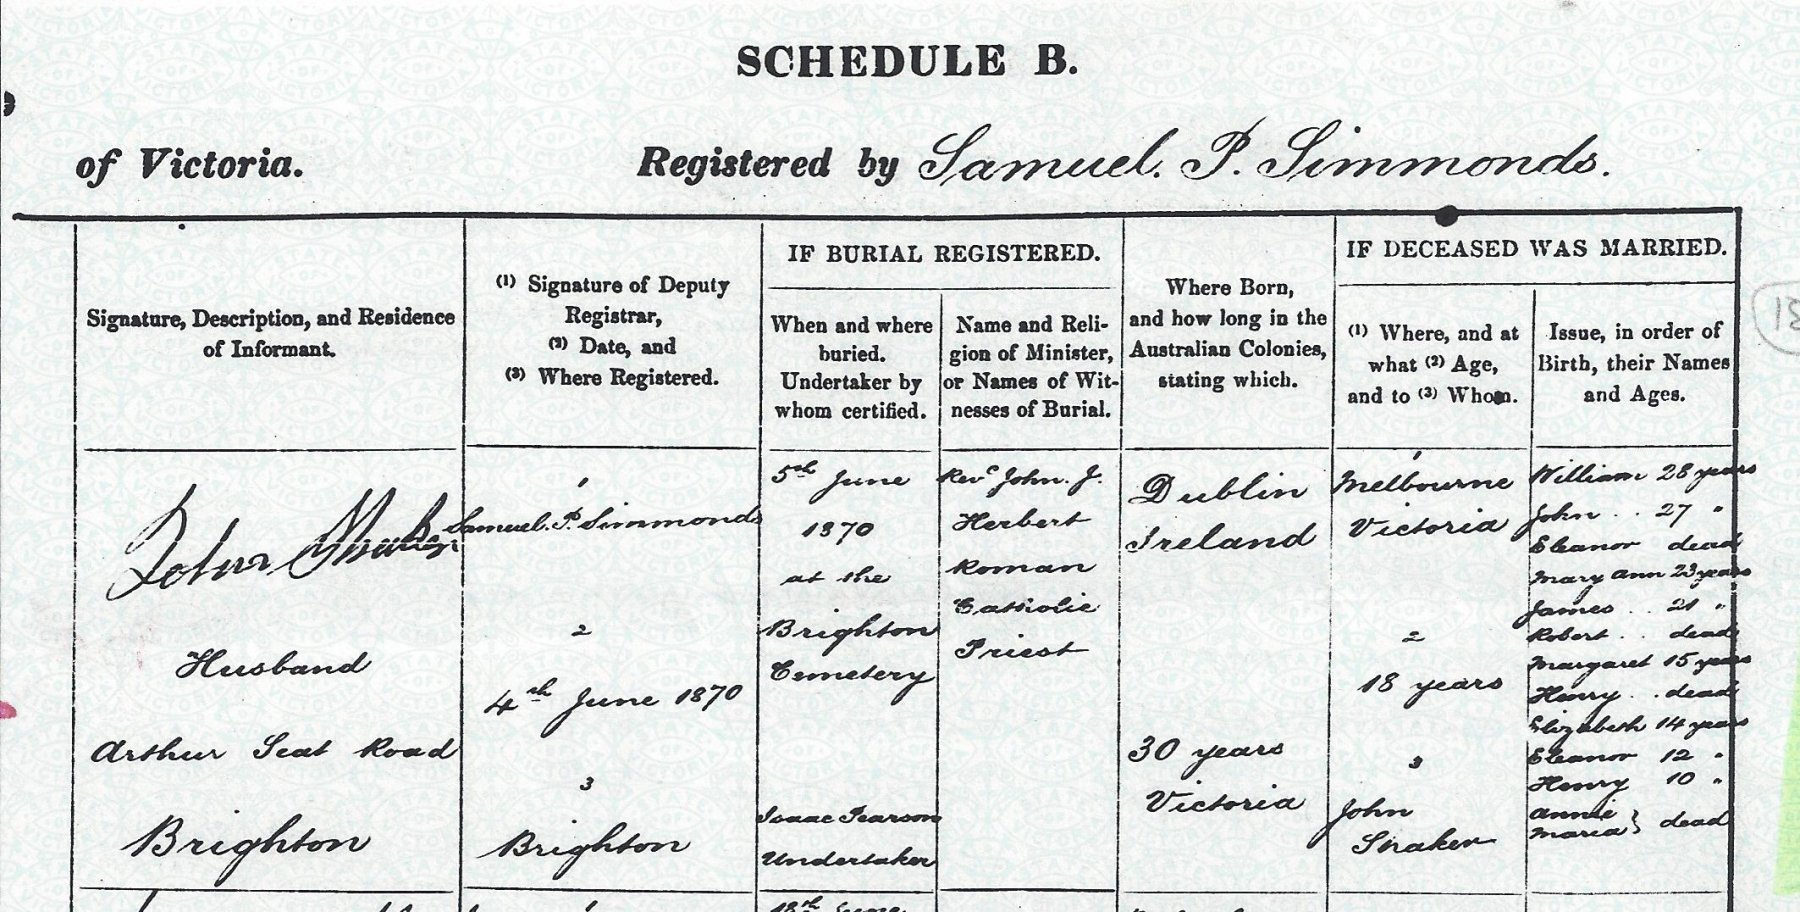 SCHEDULE B.
of Victoria.
Registered by Samuel. P. Simmonds.
Signature, Description, and Residence
of Informant.
(1) Signature of Deputy
Registrar,
(2) Date, and
(3) Where Registered.
IF BURIAL REGISTERED.
When and where
buried.
Undertaker by
whom certified.
Name and Reli-
gion of Minister,
or Names of Wit-
nesses of Burial.
Where Born,
and how long in the
Australian Colonies,
stating which.
IF DECEASED WAS MARRIED.
(1) Where, and at
what (2) Age,
and to (3) Whom.
Issue, in order of
Birth, their Names
and Ages.
John
Husband
Arthur Seat Road
Brighton
1
Samuel. P. Simmonds
2
4th June 1870
3
Brighton
5th June
1870
at the
Brighton
Cemetery
Isaac Pearson
Undertaker
Revd John. J.
Herbert
Roman
Catholic
Priest
Dublin
Ireland
30 years
Victoria
1
Melbourne
Victoria
2
18 years
3
John
William 28 years
John . . 27 "
Eleanor dead
Mary Ann 23 years
James . . 21 "
Robert . . dead
Margaret 15 years
Henry . . dead
Elizabeth 14 years
Eleanor 12 "
Henry 10 "
Annie
Maria } dead
18th June